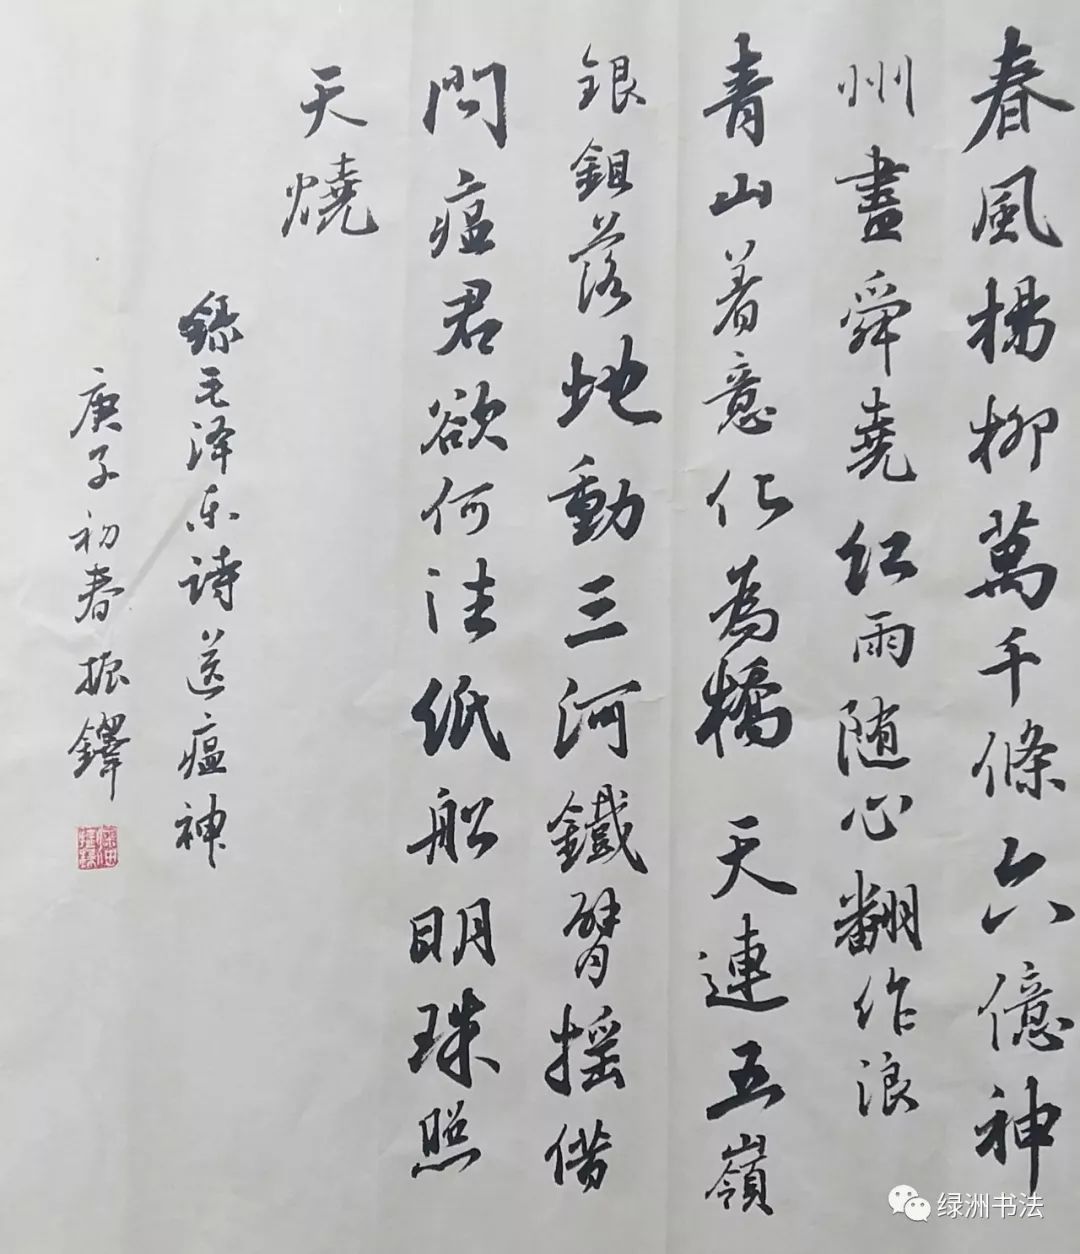 春風楊柳萬千條六億神
州盡舜堯红雨随心翻作浪
青山着意化為橋天連五嶺
銀鉏落地動三河鐵臂摇借
問瘟君欲何往纸船明珠照
天燒
録毛泽东诗送瘟神
庚子初春振鐸
绿洲书法